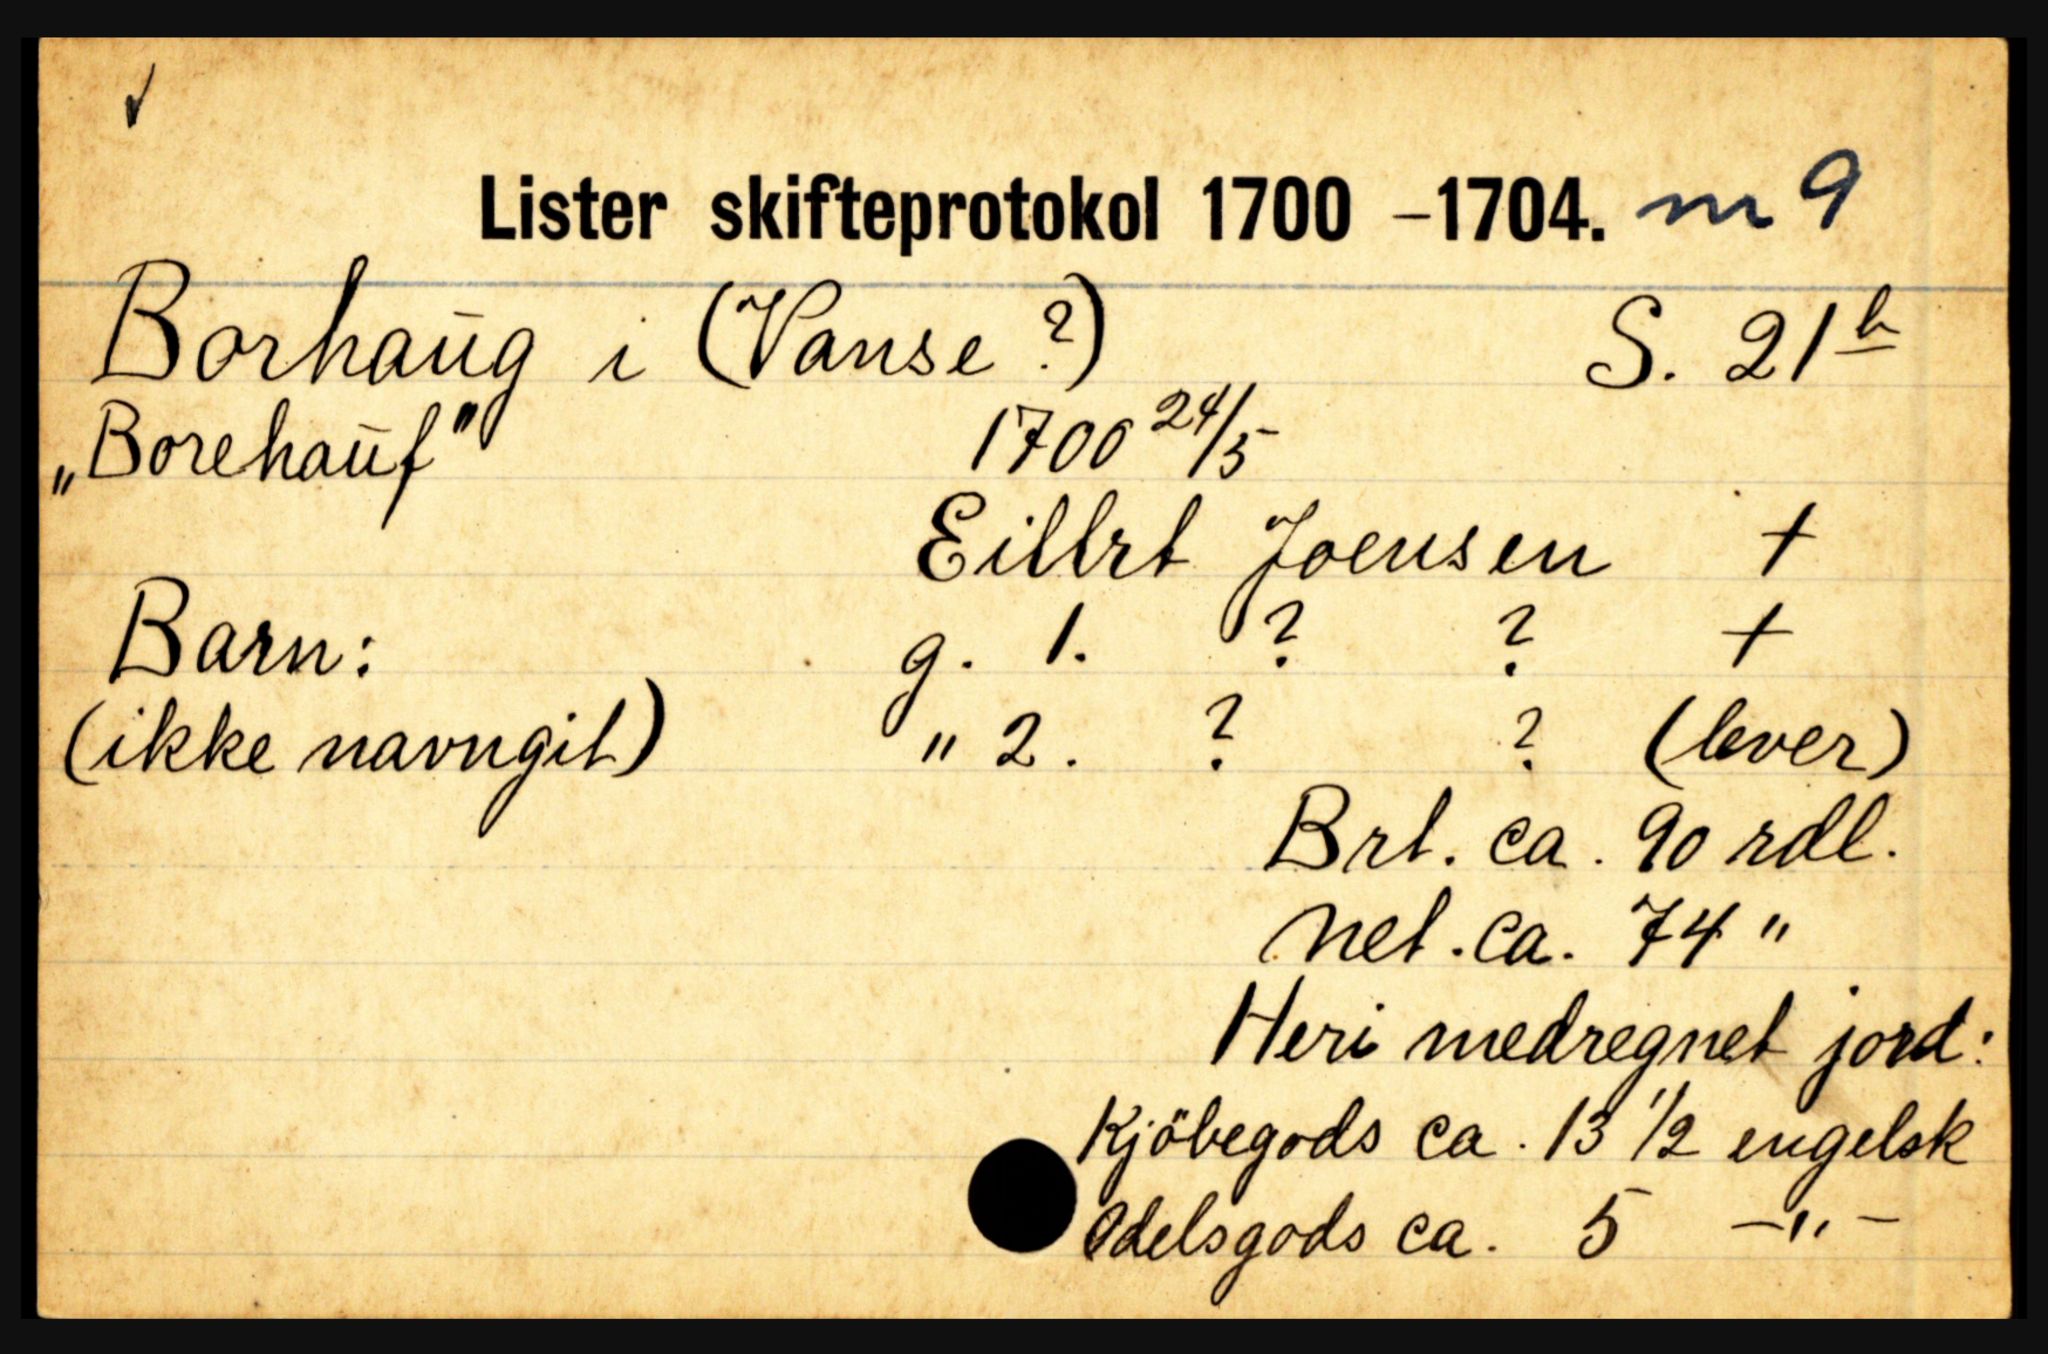 Lister skifteprotokol 1700 –1704. nr 9
Borhaug i (Vanse ?) S. 21 b
„Borehauf" 1700 24/5
Eillrt Joensen +
Barn: g. 1. ? ? +
(ikke navngit) " 2. ? ? (lever)
Brt. ca. 90 rdl.
Net. ca. 74 "
Heri medregnet jord:
Kjöbegods ca. 13 1/2 engelsk
Odelsgods ca. 5 –"–